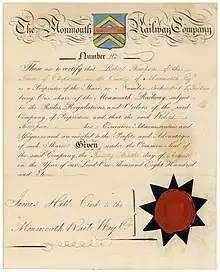 The Monmouth Railway Company
Number
These are to certify that Robert Thompson of the
in the County of Monmouth
is a Proprietor of the Share, or Number,
being One Share of the Monmouth Railway subject
to the Rules, Regulations, and Orders of the said
Company of Proprietors, and that the said Robert
Thompson his Executors Administrators and
Assigns, is and are entitled to the Profits and Advantages
of such Share. Given under the Common Seal of
the said Company, the Twenty day of August
in the Year of our Lord One Thousand Eight Hundred
and
James Hall Clerk to the
Monmouth Rail Way Co